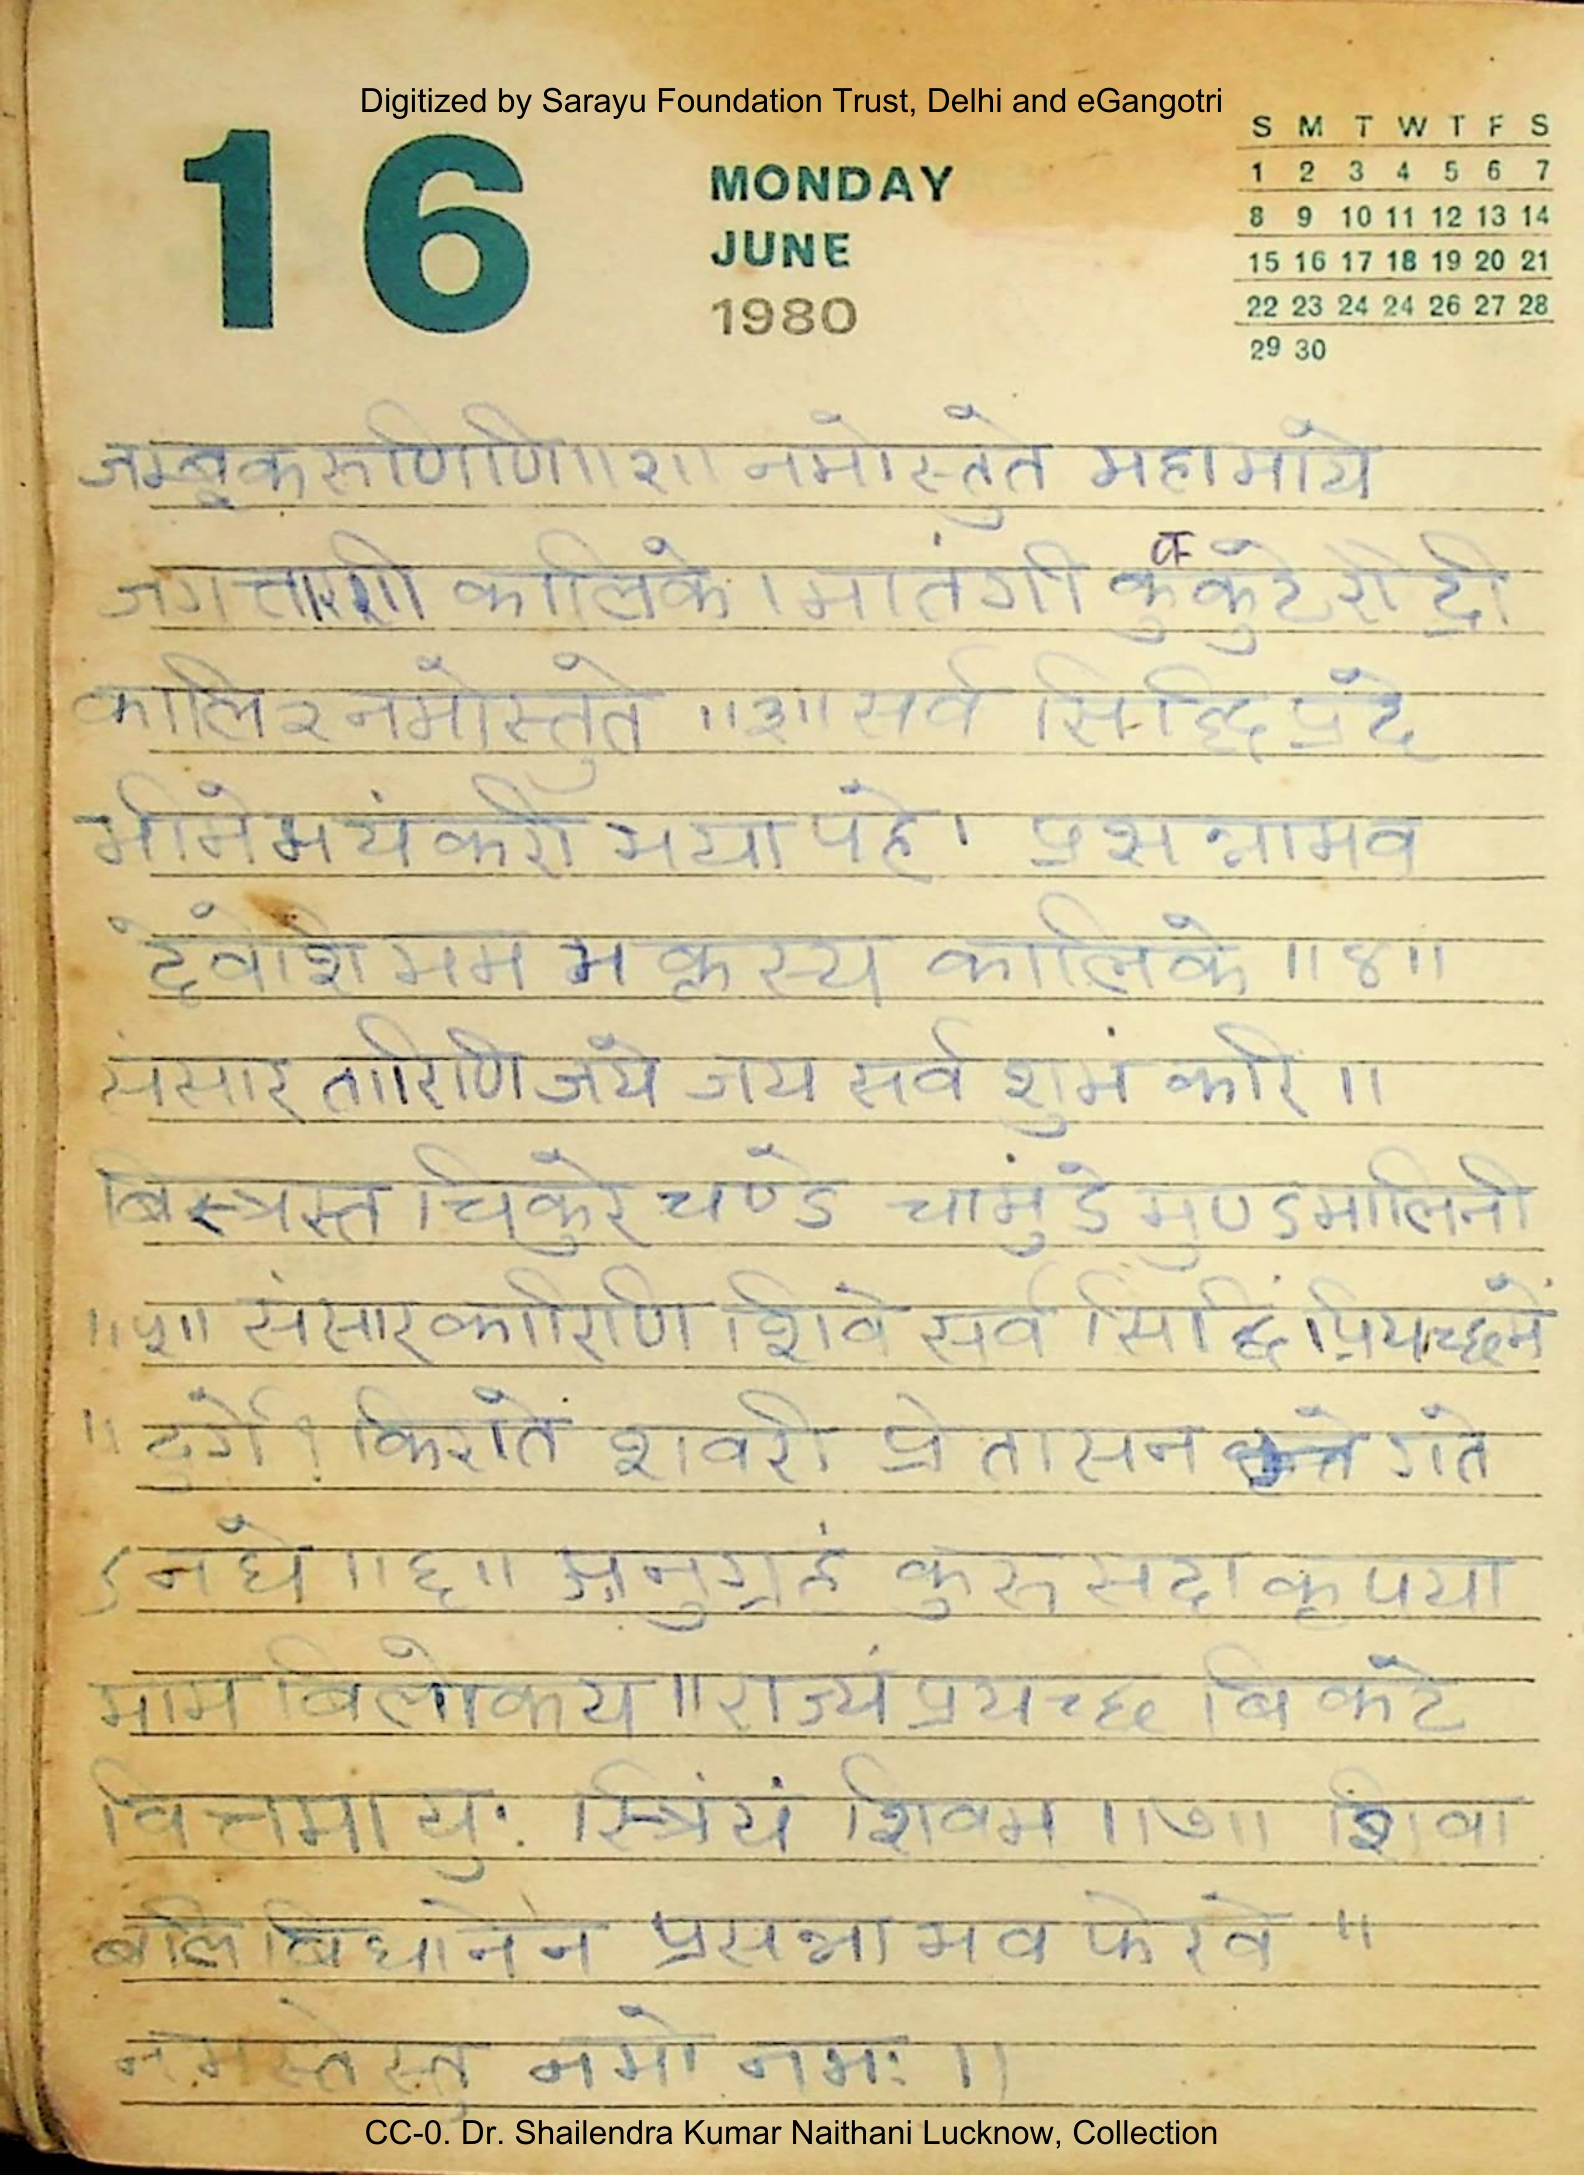 Digitized by Sarayu Foundation Trust, Delhi and eGangotri
16
MONDAY
JUNE
1980
S M T W T F S
1 2 3 4 5 6 7
8 9 10 11 12 13 14
15 16 17 18 19 20 21
22 23 24 24 26 27 28
29 30
जम्बूकरूणिणि॥२॥ नमोस्तुते महामाये
कालिके । मातंगी कुक्कुटे रौद्री
कालि २ नमोस्तुते ॥३॥ सर्व सिद्धि प्रदे
भीमे भयंकरी भयापहे । प्रसन्नाभव
देवेशि मम भक्तस्य कालिके ॥४॥
संसार तारिणि जये जय सर्व शुभं करि ॥
बिस्त्रस्त चिकुरे चण्डे चामुंडे मुण्डमालिनी
॥५॥ संसारकारिणि शिवे सर्व सिद्धिं प्रयच्छमें
॥ दुर्गे ! किराते शवरी प्रेतासन गते
ऽनघे ॥६॥ अनुग्रहं कुरु सदा कृपया
माम बिलोकय ॥ राज्यं प्रयच्छ बिकटे
वित्तमायुः स्त्रियं शिवम ॥७॥ शिवा
बलि बिधानेन प्रसन्ना भव फेरवे ॥
नमस्तेस्तु नमो नमः ॥
CC-0. Dr. Shailendra Kumar Naithani Lucknow, Collection